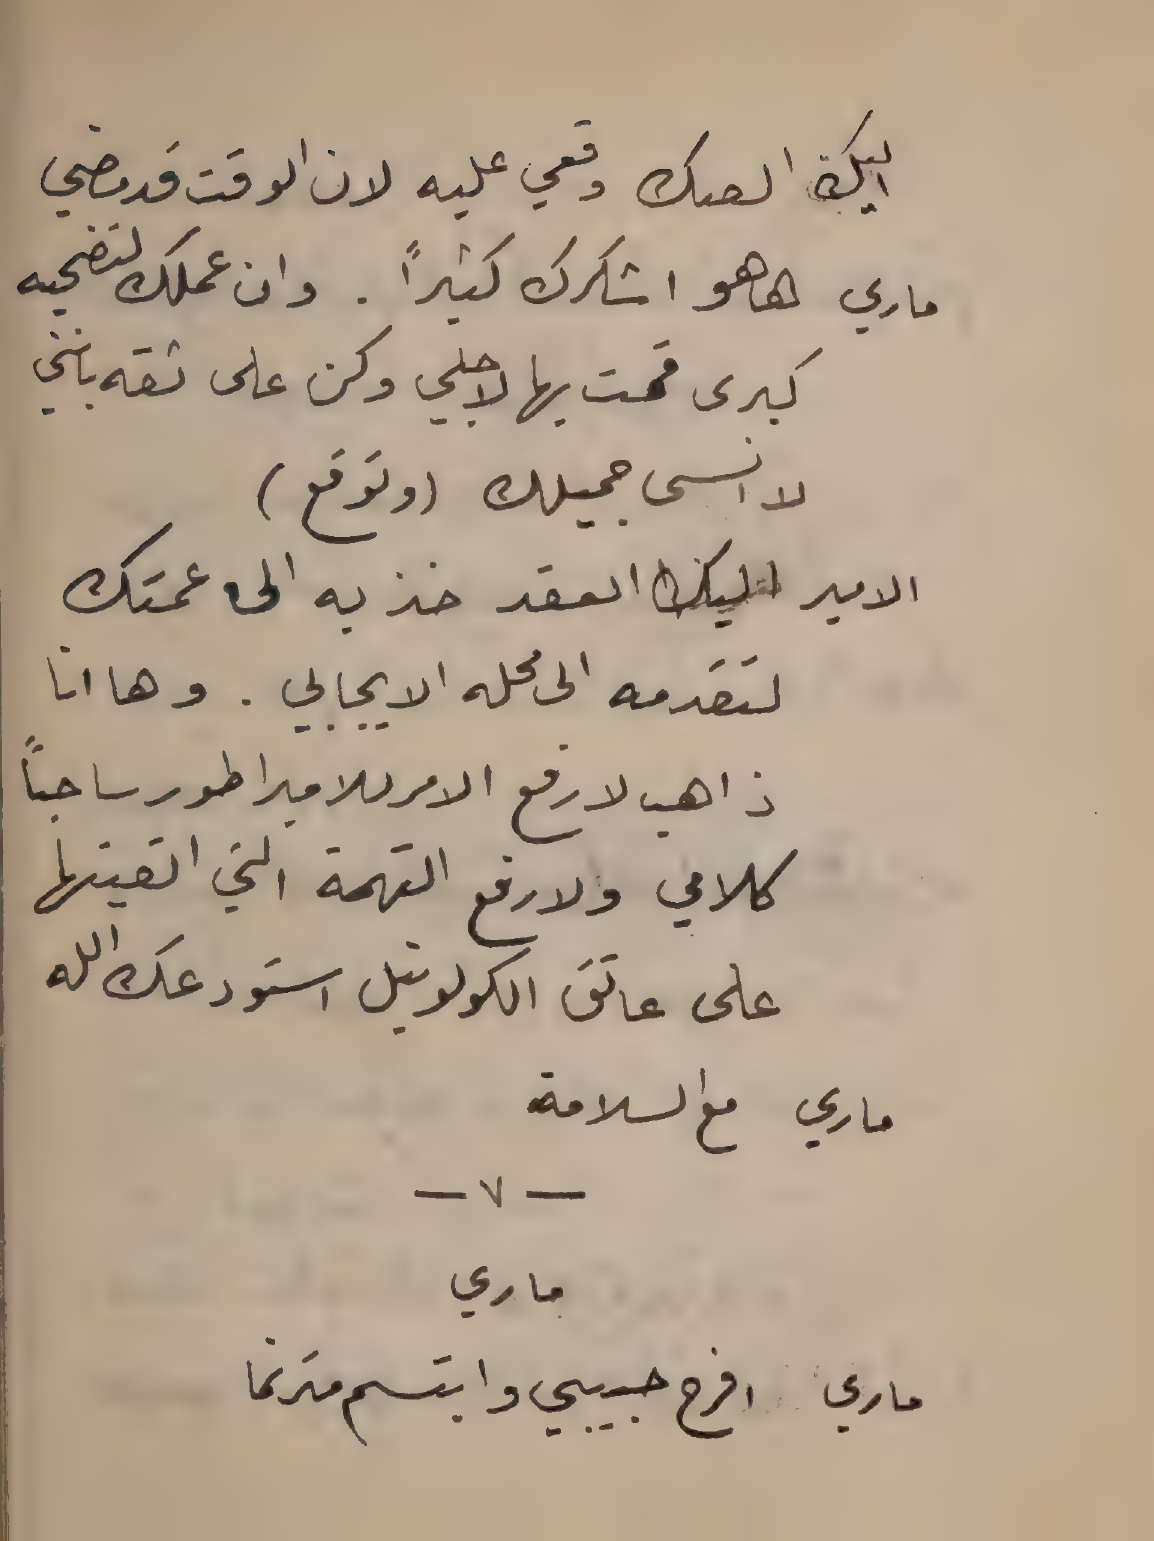 اليك الصك وقعي عليه لان الوقت قد مضى
ماري هاهو اشكرك كثيراً . وان عملك لتضحيه
كبرى قمت بها لاجلي وكن على ثقه بانني
لا انسى جميلك (وتوقع)
الامير اليك العقد خذيه الى عمتك
لتقدمه الى محله الايجابي . وها انا
ذاهب لارفع الامر للامبراطور ساحباً
كلامي ولارفع التهمة التي القيتها
على عاتق الكولونيل استودعك الله
ماري مع السلامة
— ٧ —
ماري
ماري افرح حبيبي وابتسم مترنما